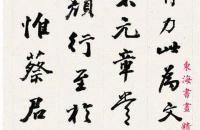 力此為文
米元章嘗
顏行至於
惟蔡君
東海書畫